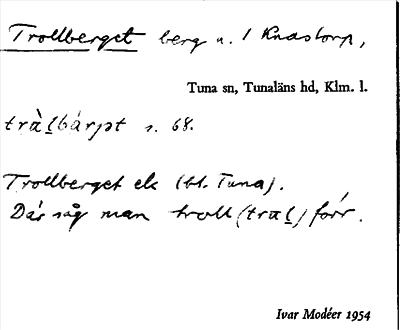 Trollberget berg n. / Knastorp,
Tuna sn, Tunaläns hd, Klm. l.
tràḻbárpt s. 68.
Trollberget ek (bl. Tuna).
Där såg man troll (traḻ) förr.
Ivar Modéer 1954